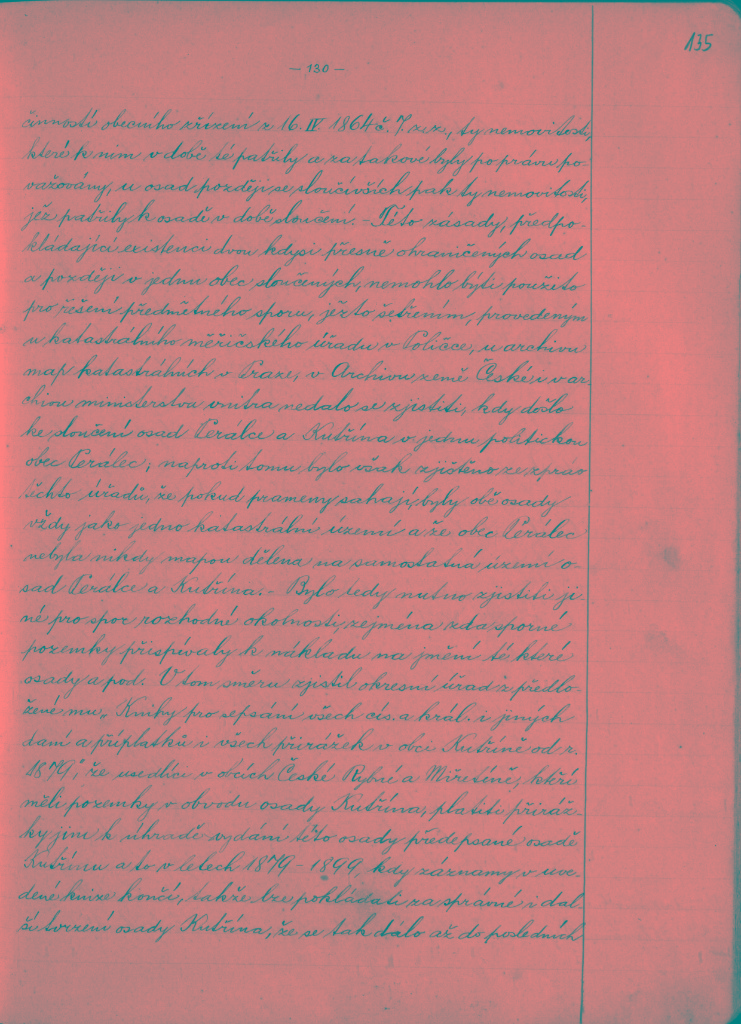 135
— 130 —
činností obecního zřízení z 16. IV 1864 č. 7. z.z., ty nemovitosti,
které k nim v době té patřily a za takové byly po právu po-
važovány, u osad později se sloučivších pak ty nemovitosti,
jež patřily k osadě v době sloučení. - Této zásady, předpo-
kládající existenci dvou kdysi přesně ohraničených osad
a později v jednu obec sloučených, nemohlo býti použito
pro řešení předmětného sporu, ježto šetřením, provedeným
u katastrálního měřičského úřadu v Poličce, u archivu
map katastrálních v Praze, v Archivu země České i v ar-
chivu ministerstva vnitra nedalo se zjistiti, kdy došlo
ke sloučení osad Perálce a Kutřína v jednu politickou
obec Perálec; naproti tomu bylo však zjištěno ze zpráv
těchto úřadů, že pokud prameny sahají, byly obě osady
vždy jako jedno katastrální území a že obec Perálec
nebyla nikdy mapou dělena na samostatná území o-
sad Perálce a Kutřína. - Bylo tedy nutno zjistiti ji-
né pro spor rozhodní okolnosti, zejména zda sporné
pozemky přispívaly k nákladu na jmění té které
osady a pod. V tom směru zjistil okresní úřad z předlo-
žené mu „Knihy pro sepsání všech cís. a král. i jiných
daní a příplatků i všech přirážek v obci Kutříně od r.
1879", že usedlíci v obcích České Rybné a Miřetíně, kteří
měli pozemky v obvodu osady Kutřína, platili přiráž-
ky jim k úhradě vydání této osady předepsané osadě
Kutřínu a to v letech 1879 - 1899, kdy záznamy v uve-
dené knize končí, takže lze pokládati za správné i dal-
ší tvrzení osady Kutřína, že se tak dálo až do posledních